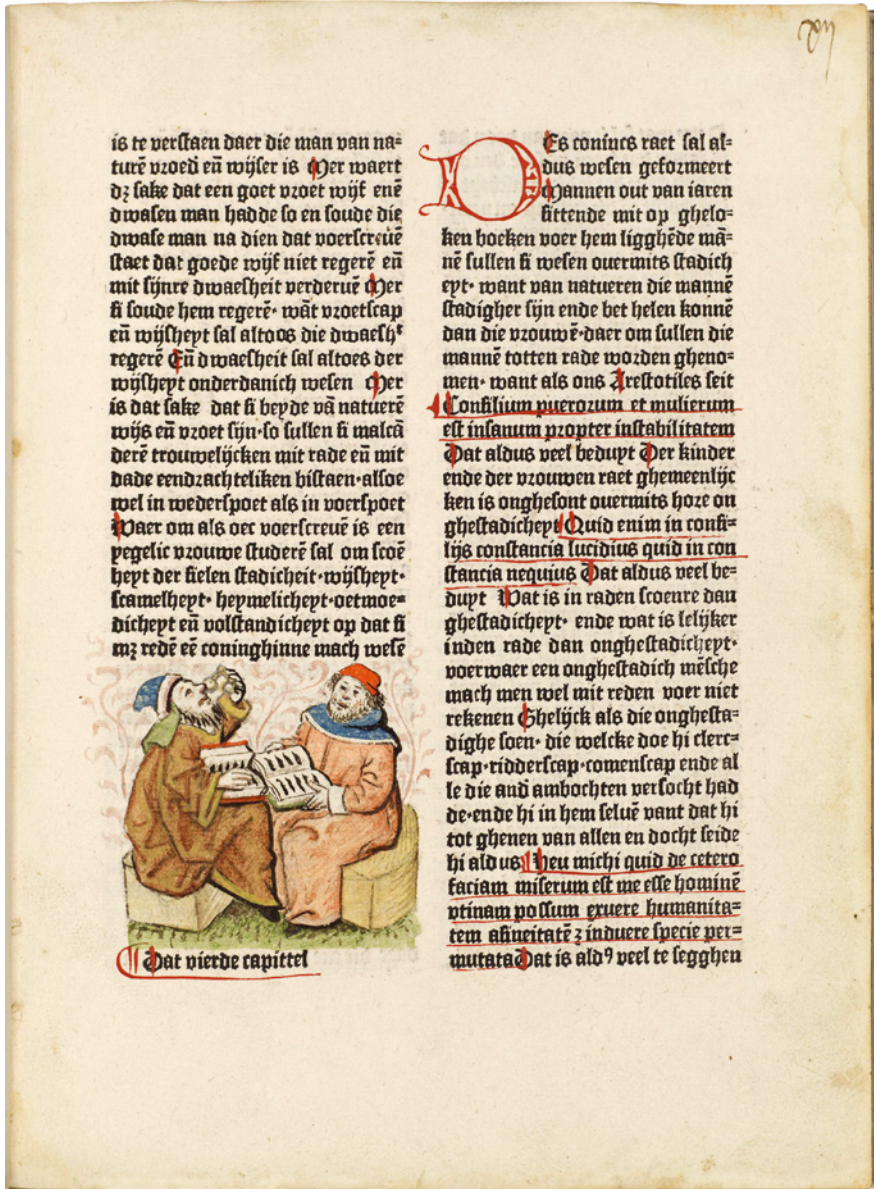 is te verstaen daer die man van na=
turē vroedī en̄ wijser is Mer waert
dꝫ sake dat een goet vroet wijf enē
dwasen man hadde so en soude die
dwase man na dien dat voerscreuē
staet dat goede wijf niet regerē en̄
mit sijnre dwaesheit verderuē Mer
si soude hem regerē· wāt vroetscap
en̄ wijsheyt sal altoos die dwaeshᵗ
regerē En̄ dwaesheit sal altoes der
wijsheyt onderdanich wesen Mer
is dat sake dat si beyde vā natuerē
wijs en̄ vroet sijn·so sullen si malcā
derē trouwelijcken mit rade en̄ mit
dade eendrachteliken bistaen·alsoe
wel in wederspoet als in voerspoet
Waer om als oec voerscreuē is een
yegelic vrouwe studerē sal om scoē
heyt der sielen stadicheit·wijsheyt·
scamelheyt· heymelicheyt·oetmoe=
dicheyt en̄ volstandicheyt op dat si
mꝫ redē eē coninghinne mach wesē
Dat vierde capittel
DEs conincs raet sal al=
dus wesen geformeert
Mannen out van iaren
sittende mit op ghelo=
ken boeken voer hem ligghēde mā=
nē sullen si wesen ouermits stadich
eyt· want van natueren die mannē
stadigher sijn ende bet helen konnē
dan die vrouwē·daer om sullen die
mannē totten rade worden gheno=
men· want als ons Arestotiles seit
Consilium puerorum et mulierum
est insanum propter instabilitatem
Dat aldus veel beduyt Der kinder
ende der vrouwen raet ghemeenlijc
ken is onghesont ouermits hore on
ghestadicheyt Quid enim in consi=
lijs constancia lucidius quid in con
stancia nequius Dat aldus veel be=
duyt Wat is in raden scoenre dan
ghestadicheyt· ende wat is lelijker
inden rade dan onghestadicheyt·
voerwaer een onghestadich mēsche
mach men wel mit reden voer niet
rekenen Ghelijck als die onghesta=
dighe soen· die welcke doe hi clerc=
scap·ridderscap·comenscap ende al
le die and̄ ambochten versocht had
de·ende hi in hem seluē vant dat hi
tot ghenen van allen en docht seide
hi aldus Heu michi quid de cetero
faciam miserum est me esse hominē
vtinam possum exuere humanita=
tem afineitatē ꝫ induere specie per=
mutata Dat is aldꝰ veel te segghen